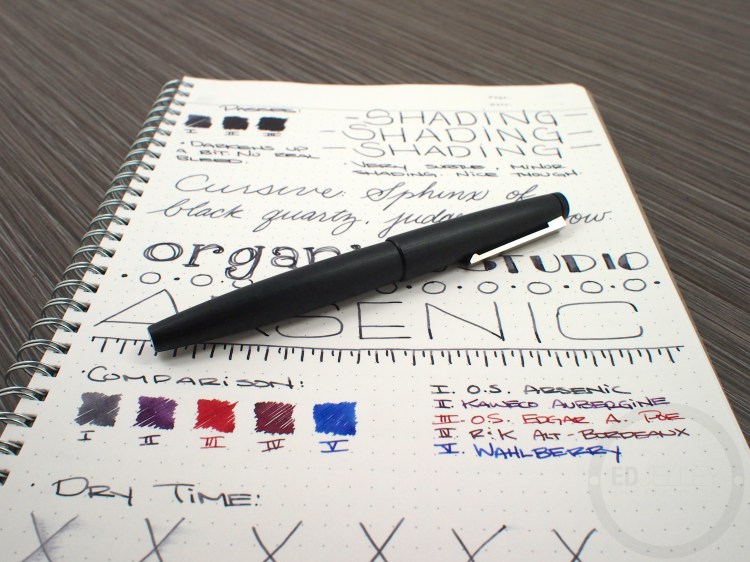 Passes:
I II III
• Darkens up
a bit. No real
bleed.
-SHADING-
-SHADING-
-SHADING-
• Very subtle, minor
shading. Nice though.
Cursive: Sphinx of
black quartz, judge
organ STUDIO
ARSENIC
• Comparison:
I II III IV V
I. O.S. Arsenic
II. Kaweco Aubergine
III. O.S. Edgar A. Poe
IV. R:K Alt-Bordeaux
V. Wahlberry
• Dry Time:
X X X X X X
ED